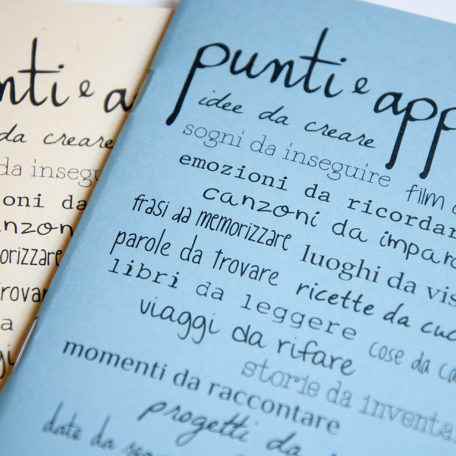 punti e app
idee da creare
sogni da inseguire film
emozioni da ricordar
canzoni da impara
frasi da memorizzare luoghi da vis
parole da trovare ricette da cuc
libri da leggere cose da ca
viaggi da rifare
storie da inventa
momenti da raccontare
progetti da
date da
nti e a
da creare
da inseg
oni da
nzon
orizzare
rovar